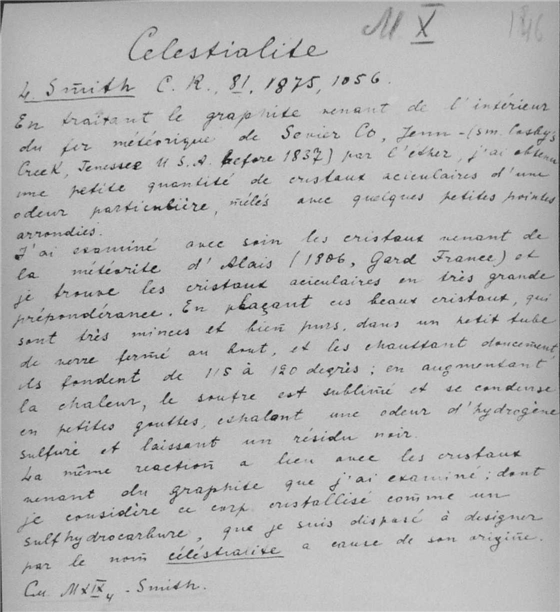 M X 1816
Celestialite
L. Smith C. R., 81, 1875, 1056.
En traitant le graphite venant de l'intérieur
du fer météorique de Sevier Co, Tenn-(Sm. Cosbys
Creek, Tenessee U.S.A. before 1837) par l'ether, j'ai obtenu
une petite quantité de cristaux aciculaires d'une
odeur particulière, mélés avec quelques petites pointes
arrondies.
J'ai examiné avec soin les cristaux venant de
la météorite d'Alais (1806, Gard France) et
je trouve les cristaux aciculaires en très grande
prépondérance. En plaçant ces beaux cristaux, qui
sont très minces et bien purs, dans un petit tube
de verre fermé au bout, et les chauffant doucement,
ils fondent de 115 à 120 degrès; en augmentant
la chaleur, le soufre est sublimé et se condense
en petites gouttes, exhalant une odeur d'hydrogène
sulfuré et laissant un résidu noir.
La même reaction a lieu avec les cristaux
venant du graphite que j'ai examiné; dont
je considère ce corp cristallisé comme un
sulfhydrocarbure, que je suis disposé à designer
par le nom céléstialite a cause de son origine.
Cu MXIX4 - Smith.